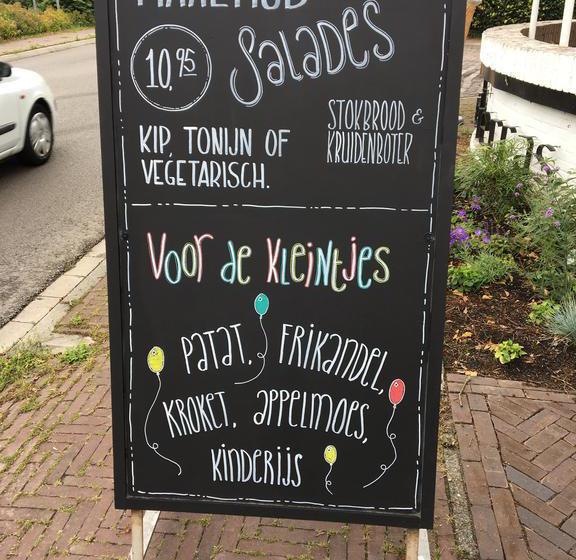 Salades
10,95
STOKBROOD &
KRUIDENBOTER
KIP, TONIJN OF
VEGETARISCH.
Voor de Kleintjes
PATAT, FRIKANDEL,
KROKET, APPELMOES,
KINDERIJS